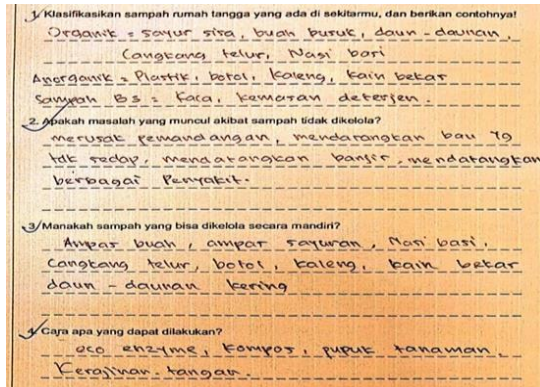 1. Klasifikasikan sampah rumah tangga yang ada di sekitarmu, dan berikan contohnya!
Organik = sayur sisa, buah busuk, daun-daunan,
Cangkang telur, Nasi basi
Anorganik = Plastik, botol, kaleng, kain bekas
Sampah B3 = Kaca, kemasan deterjen.
2. Apakah masalah yang muncul akibat sampah tidak dikelola?
merusak pemandangan, mendatangkan bau yg
tdk sedap, mendatangkan banjir, mendatangkan
berbagai Penyakit.
3. Manakah sampah yang bisa dikelola secara mandiri?
Ampas buah, ampas sayuran, Nasi basi,
Cangkang telur, botol, kaleng, kain bekas
daun - daunan kering
4. Cara apa yang dapat dilakukan?
eco enzyme, kompos, pupuk tanaman,
Kerajinan tangan.